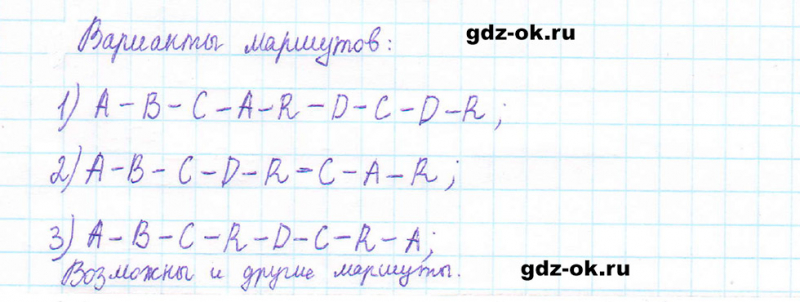 Варианты маршутов: gdz-ok.ru
1) A - B - C - A - R - D - C - D - R;
2) A - B - C - D - R - C - A - R;
3) A - B - C - R - D - C - R - A;
Возможны и другие маршуты.
gdz-ok.ru